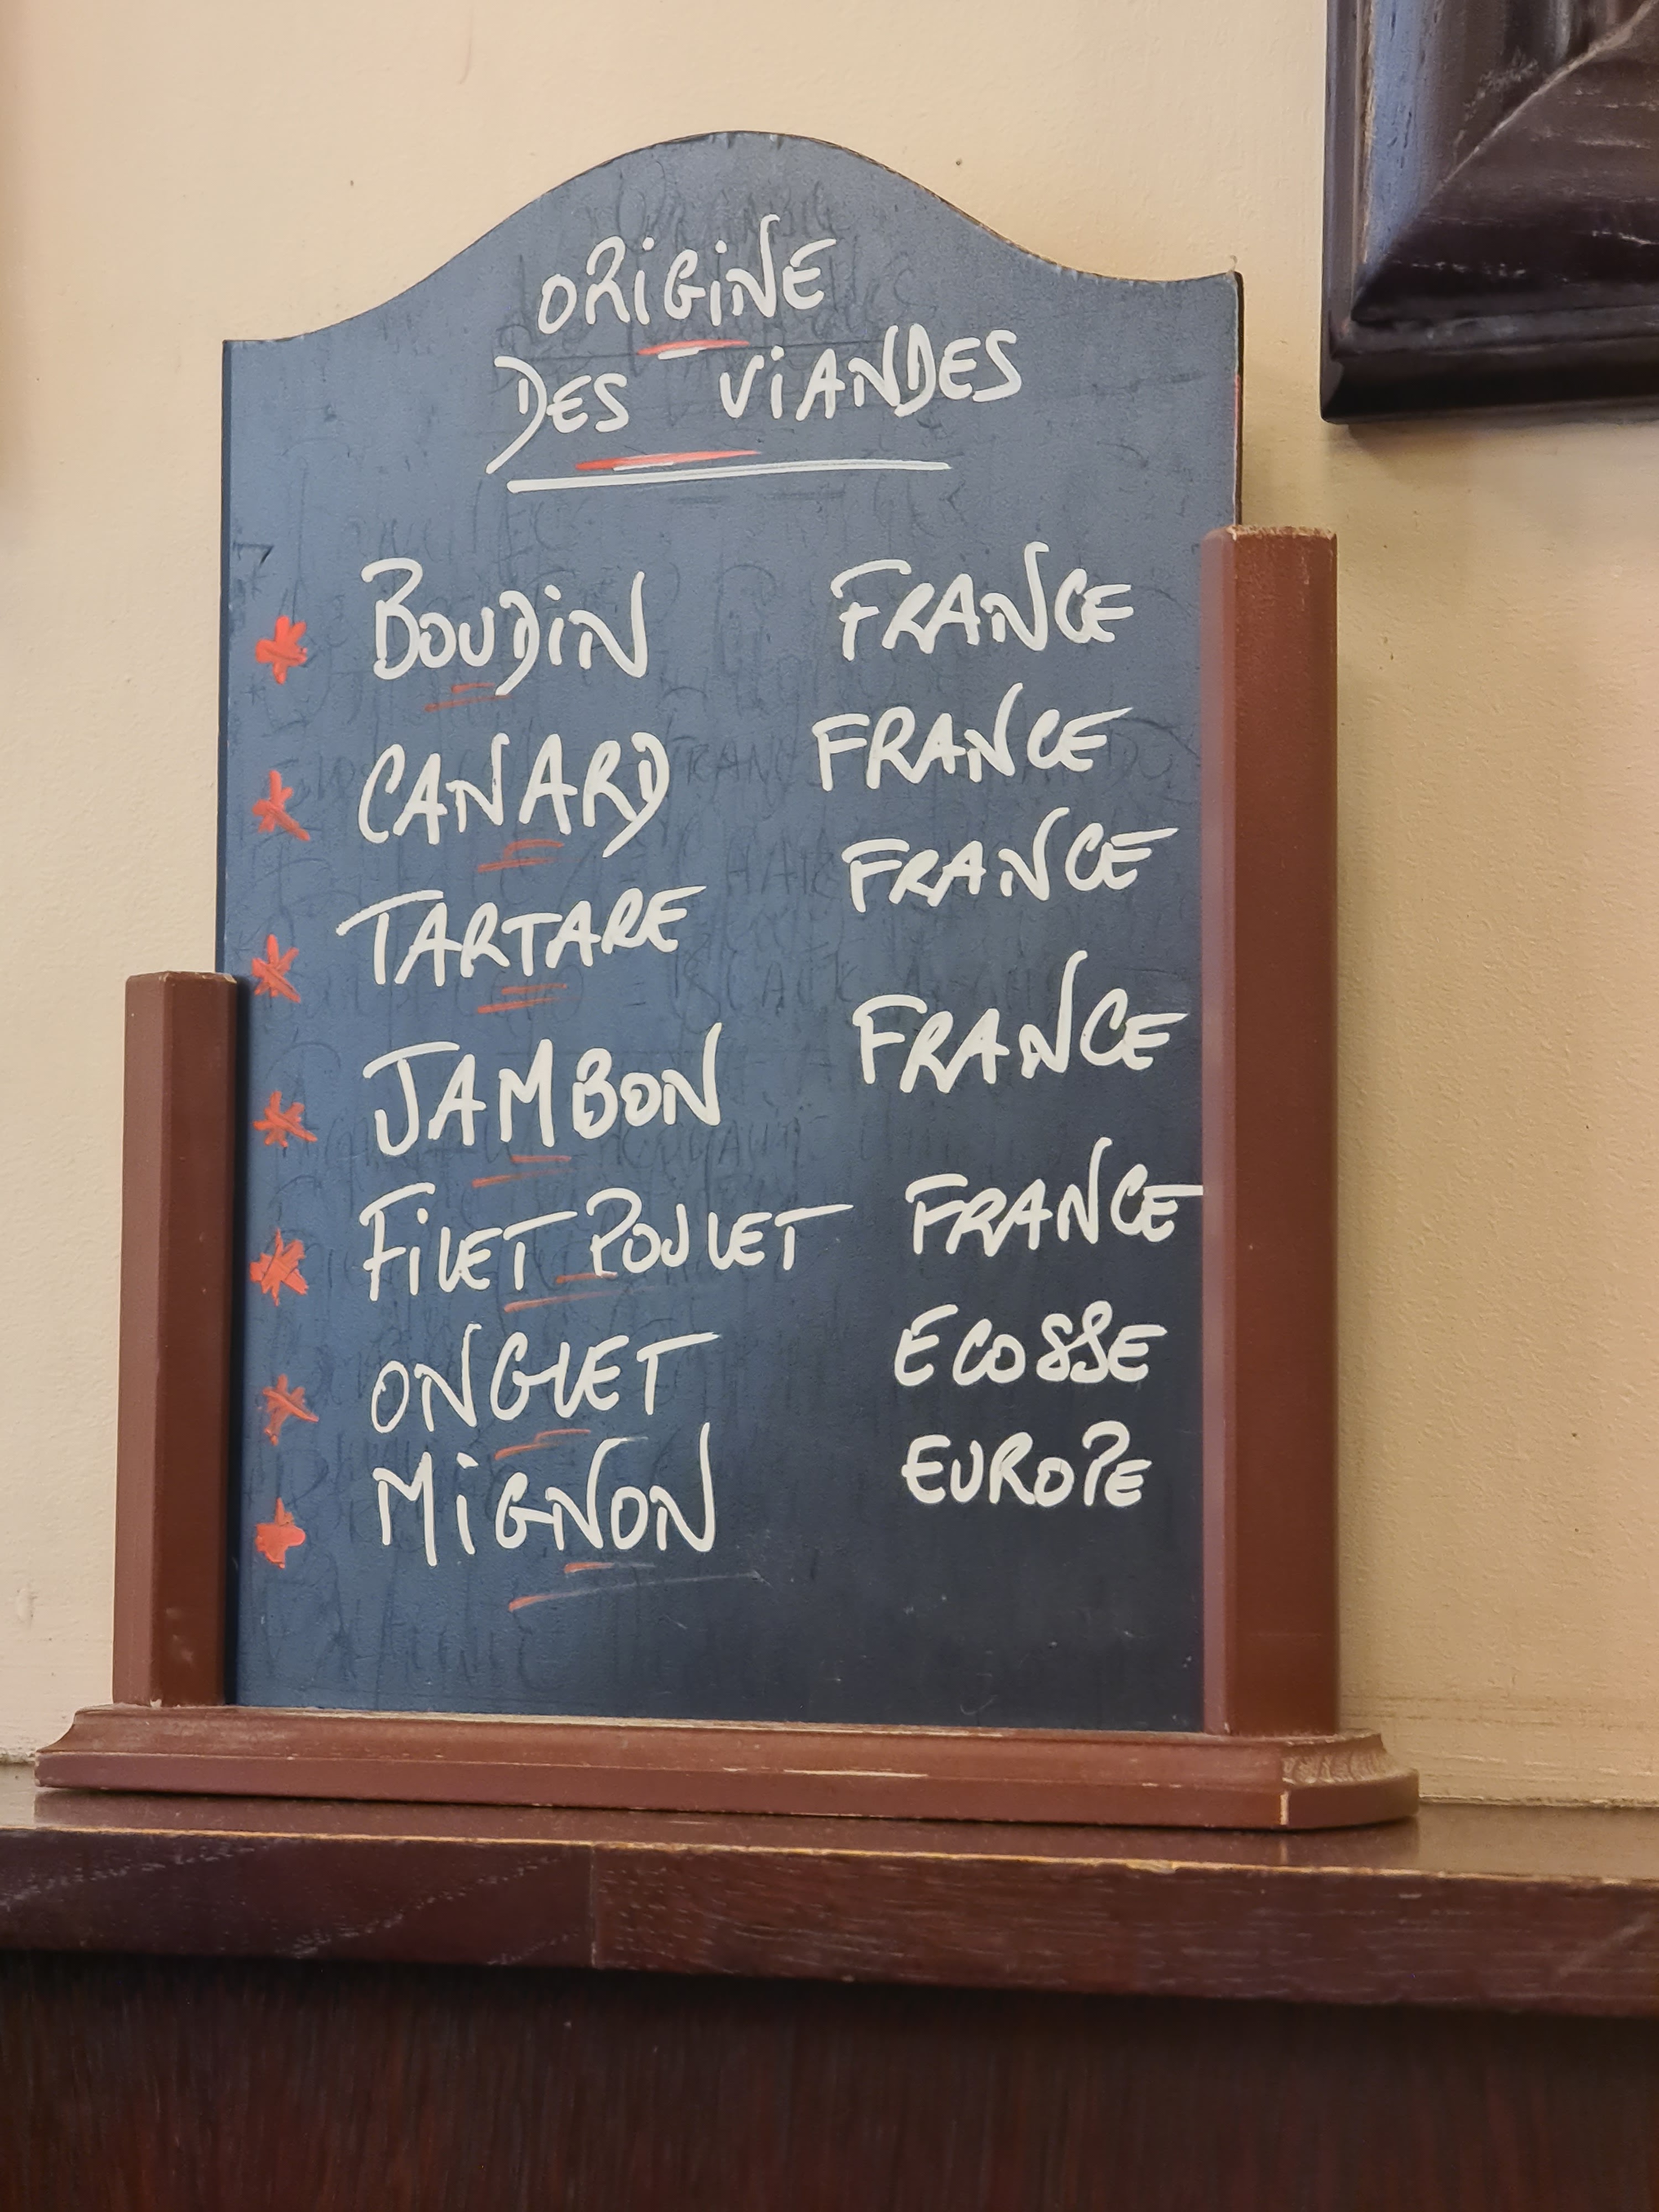 ORiGiNE
DES ViANDES
BOUDiN FRANCE
CANARD FRANCE
TARTARE FRANCE
JAMBON FRANCE
FiLET POULET FRANCE
ONGLET ECOSSE
MiGNON EUROPE